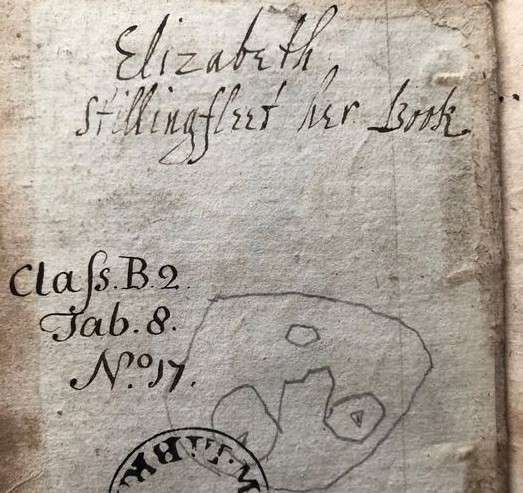 Elizabeth
Stillingfleet her Book
Claſs.B.2.
Tab.8.
N.º17.